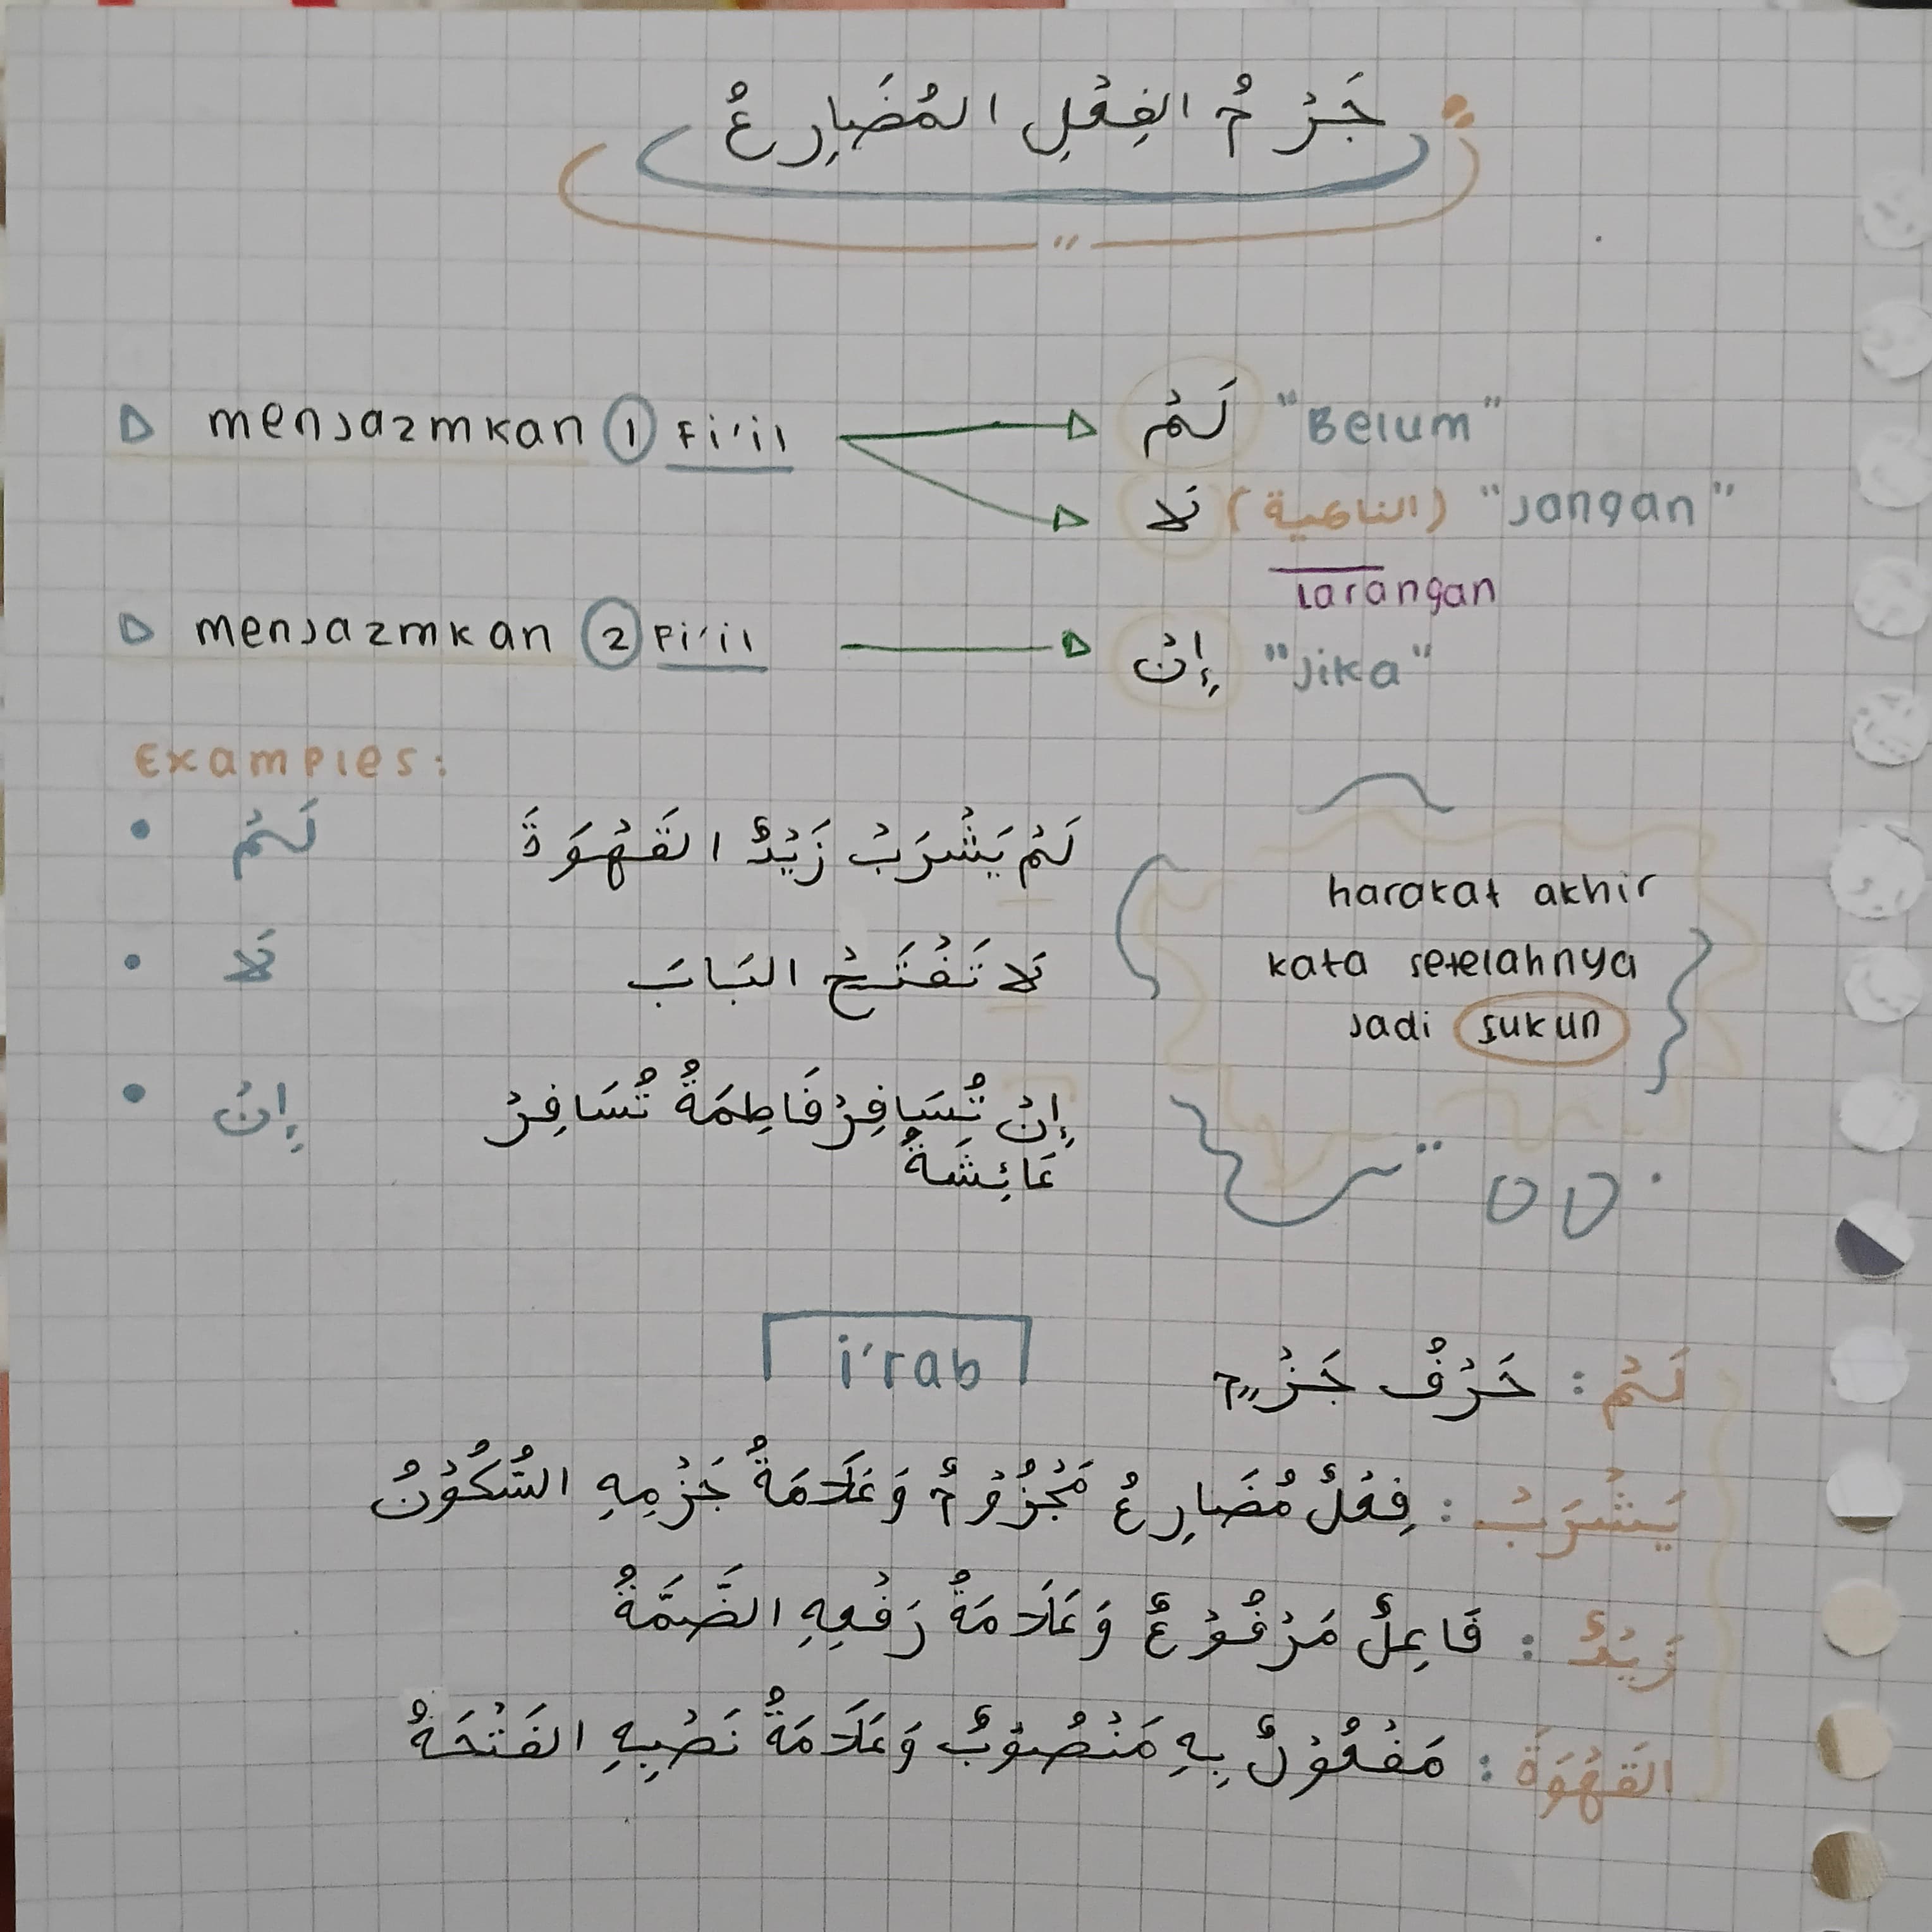 جَزْمُ الفِعْلِ المُضَارِعُ
menjazmkan ① Fi'il لَمْ "Belum"
لَا (الناهية) "Jangan"
larangan
menjazmkan ② Fi'il إِنْ "Jika"
Examples:
• لَمْ لَمْ يَشْرَبْ زَيْدٌ القَهْوَةَ
• لَا لَا تَفْتَحْ البَابَ
• إِنْ إِنْ تُسَافِرْ فَاطِمَةُ تُسَافِرْ
عَائِشَةُ
harakat akhir
kata setelahnya
jadi sukun
i'rab
لَمْ : حَرْفُ جَزْمٍ
يَشْرَبْ : فِعْلٌ مُضَارِعُ مَجْزُوْمٌ وَعَلَامَةُ جَزْمِهِ السُّكُوْنُ
زَيْدٌ : فَاعِلٌ مَرْفُوْعٌ وَعَلَامَةُ رَفْعِهِ الضَّمَّةُ
القَهْوَةَ : مَفْعُوْلٌ بِهِ مَنْصُوْبٌ وَعَلَامَةُ نَصْبِهِ الفَتْحَةُ